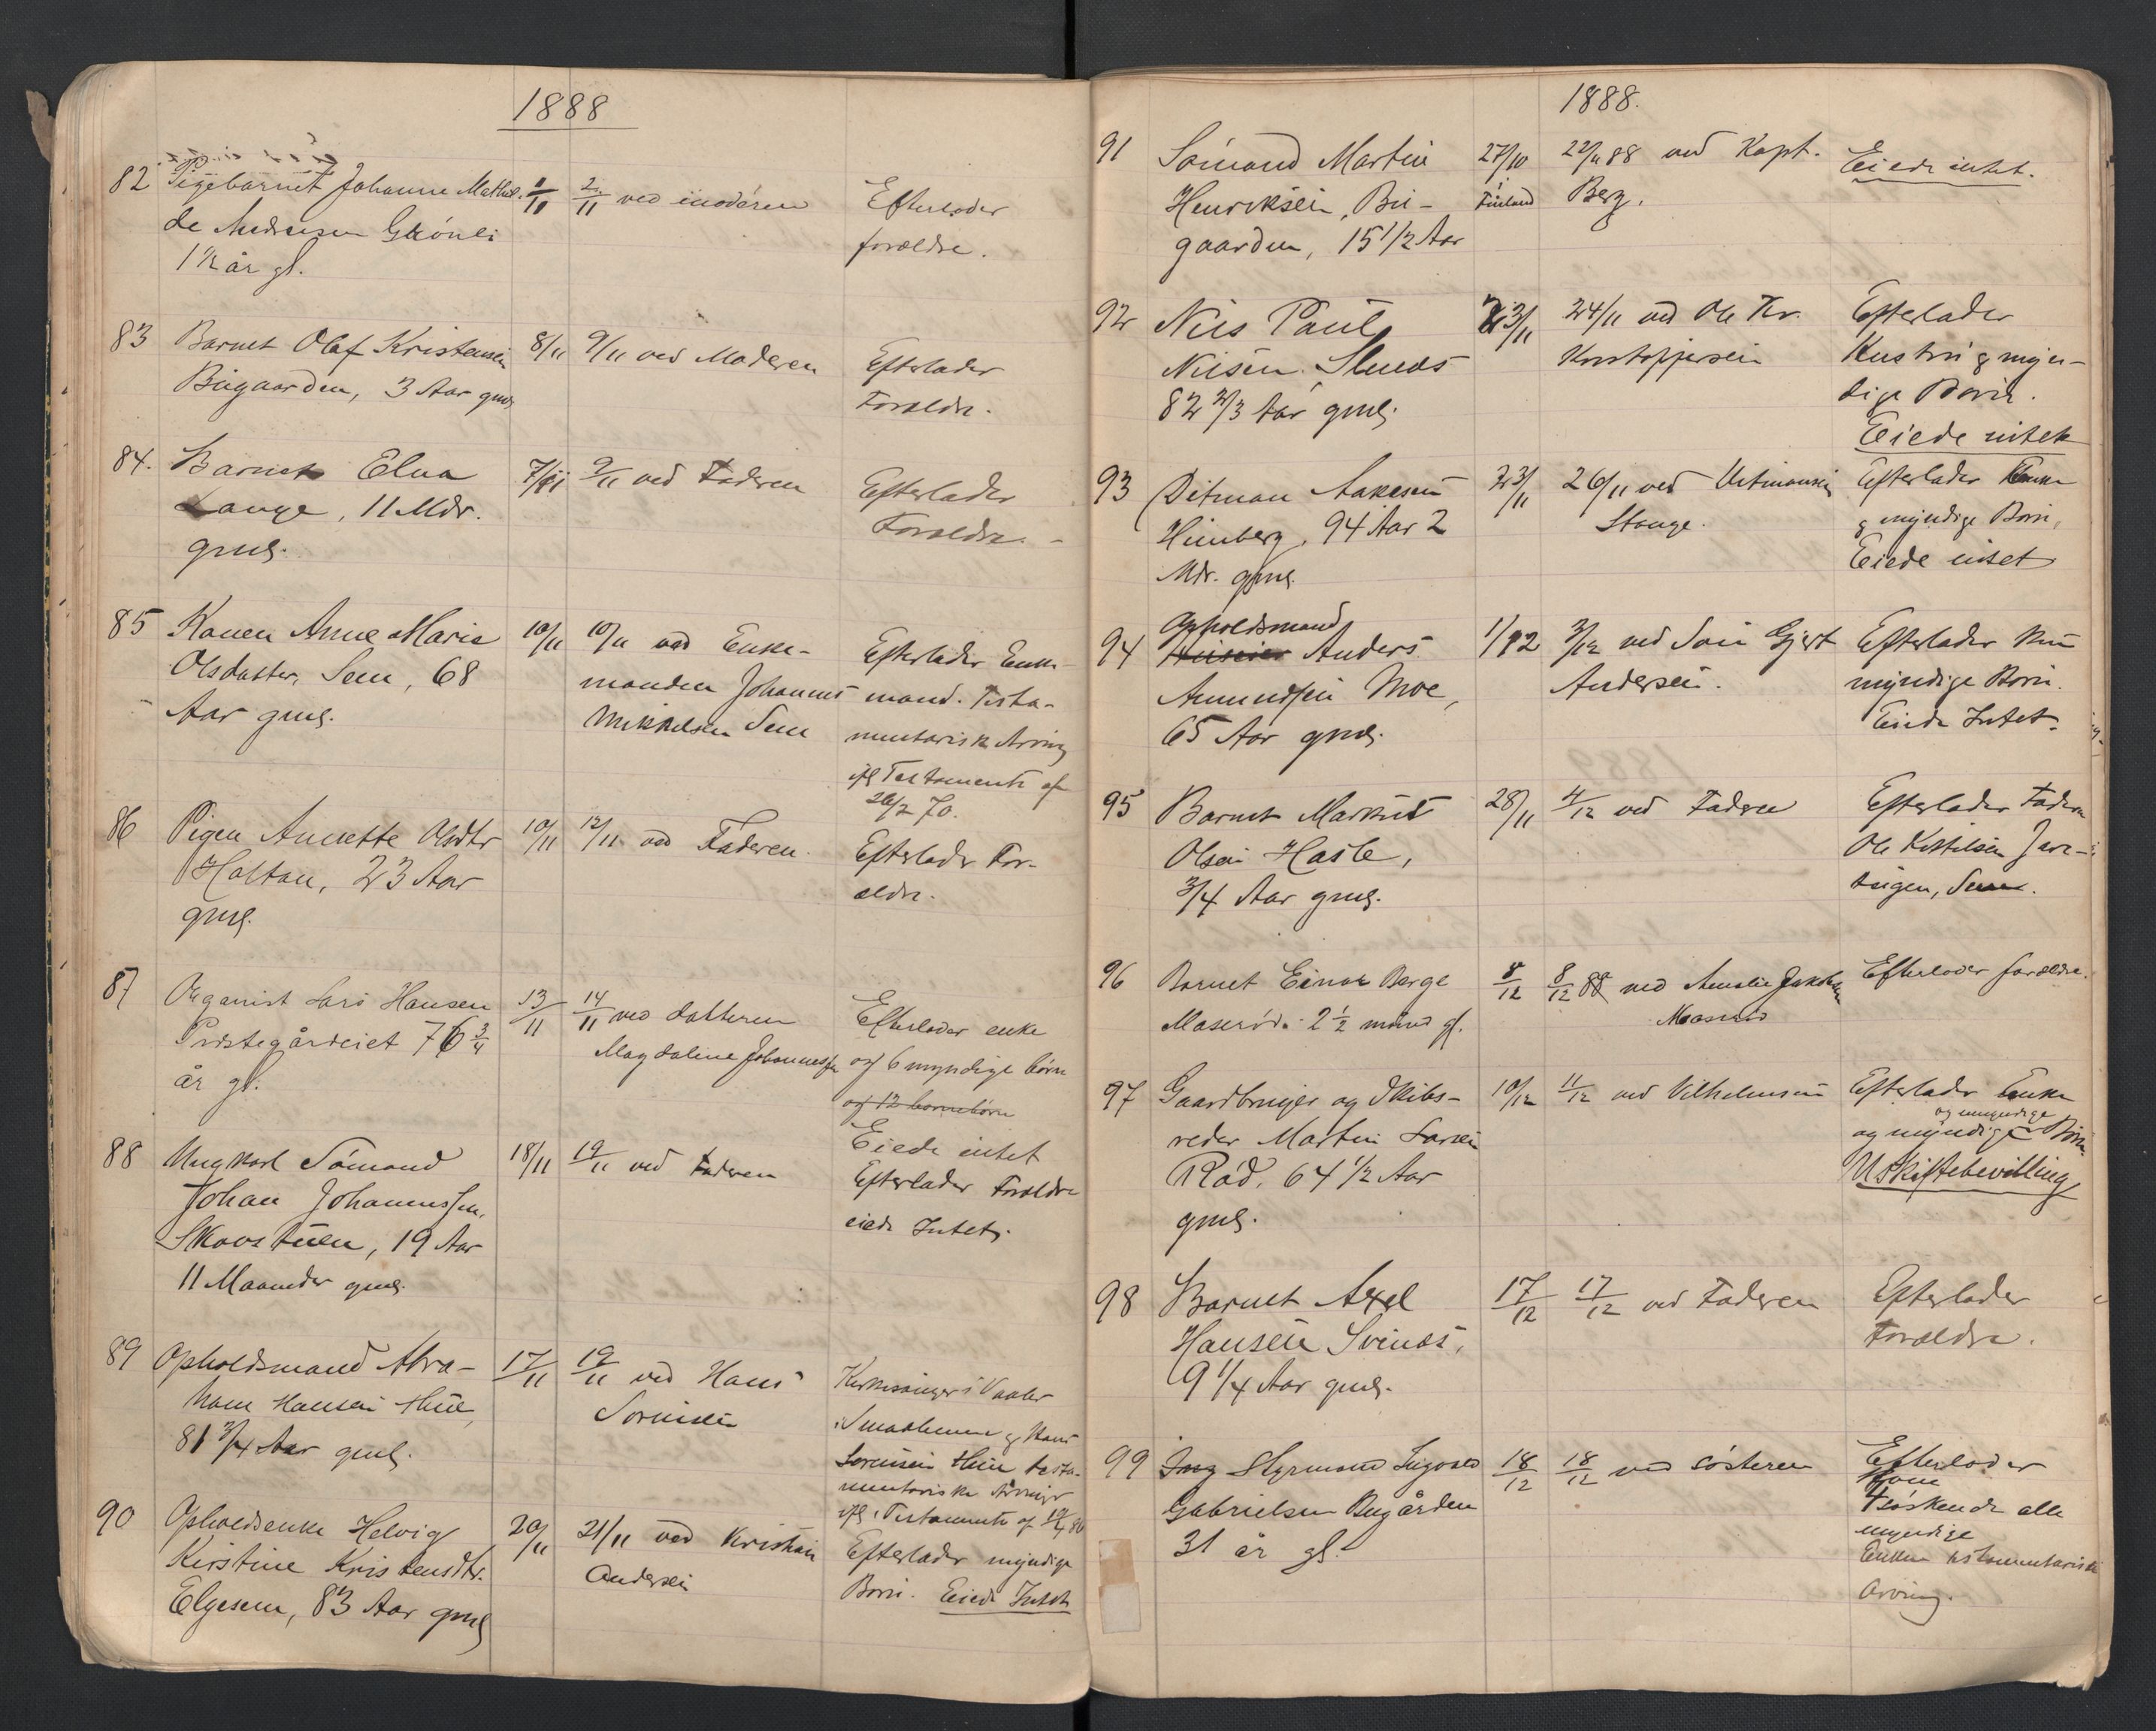 1888
82 Pigebarnet Johanne Mathil- 1/11 2/11 ved moderen Efterlader
de Andresen Grönli forældre.
1 1/2 år gl.
83 Barnet Olaf Kristensen 8/11 9/11 ved Moderen Efterlader
Bugaarden, 3 Aar gml. Forældre.
84. Barnet Elna 7/11 9/11 ved Faderen Efterlader
Lange, 11 Mdr. Forældre. -
gml.
85 Konen Anne Marie 10/11 10/11 ved Enke- Efterlader Enke-
Olsdatter, Sem, 68 manden Johannes mand. Testa-
Aar gml. Mikkelsen Sem mentarisk Arving
ifl Testamente af
26/2 70.
86 Pigen Annette Olsdtr 10/11 12/11 ved Faderen. Efterlader For-
Holtan, 23 Aar ældre.
gml.
87 Organist Lars Hansen 13/11 14/11 ved datteren Efterlader enke
Prestegårdeiet 76 3/4 Magdaline Johannessen og 6 myndige børn
år gl. og 12 børnebørn
Eiede intet
88 Ungkarl Sömand 18/11 19/11 ved Faderen Efterlader Forældre
Johan Johannessen, eiede Intet.
Skovstuen, 19 Aar
11 Maaneder gml.
89 Opholdsmand Abra- 17/11 19/11 ved Hans Kirkesanger i Vaaler
ham Hansen Hue, Sörensen i Smaalenene og Hans
81 3/4 Aar gml. Sörensen Hue testa-
mentariske Arvinger
ifl. Testamente af
90 Opholdsenke Helvig 20/11 21/11 ved Kristian Efterlader myndige
Kirstine Kristensdtr. Andersen Börn. Eiede Intet
Elgesem, 83 Aar gml
1888.
91 Sömand Martin 27/10 22/11 88 ved Kapt. Eiede intet.
Henriksen, Bu- Finland Berg.
gaarden, 15 1/2 Aar
92 Nils Paul 23/11 24/11 ved Ole Kr. Efterlader
Nilsen. Kristoffersen Hustru og myn-
82 2/3 Aar gml. dige Börn.
Eiede intet
93 Ditman Aakesen 23/11 26/11 ved Efterlader Enke
Himberg, 94 Aar 2 Stange. og myndige Börn,
Mdr. gml. Eiede intet
Opholdsmand
94 Anders 1/12 3/12 ved Sön Gjert Efterlader kun
Amundsen Moe, Andersen. myndige Börn.
65 Aar gml. Eiede Intet.
95 Barnet Markus 28/11 4/12 ved Faderen Efterlader Faderen
Olsen Hasle, Ole Kittilsen Jare-
3/4 Aar gml. teigen, Sem.
96 Barnet Einar Berge 8/12 8/12 88 ved Amalie Jakobsen Efterlader forældre.
Maserød. 2 1/2 månd gl. Maserød
97 Gaardbruger og Skibs- 10/12 11/12 ved Vilhelmsen Efterlader Enke
reder Martin Larsen og umyndige
Röd, 64 1/2 Aar og myndige Börn.
gml. Uskiftebevilling
98 Barnet Axel 17/12 17/12 ved Faderen Efterlader
Hansen Svinös, Forældre.
9 1/4 Aar gml.
99 Styrmand Ingvald 18/12 18/12 ved søsteren Efterlader
Gabrielsen Bugården Kone
31 år gl. søskende alle
myndige
Enken testamentarisk
Arving.